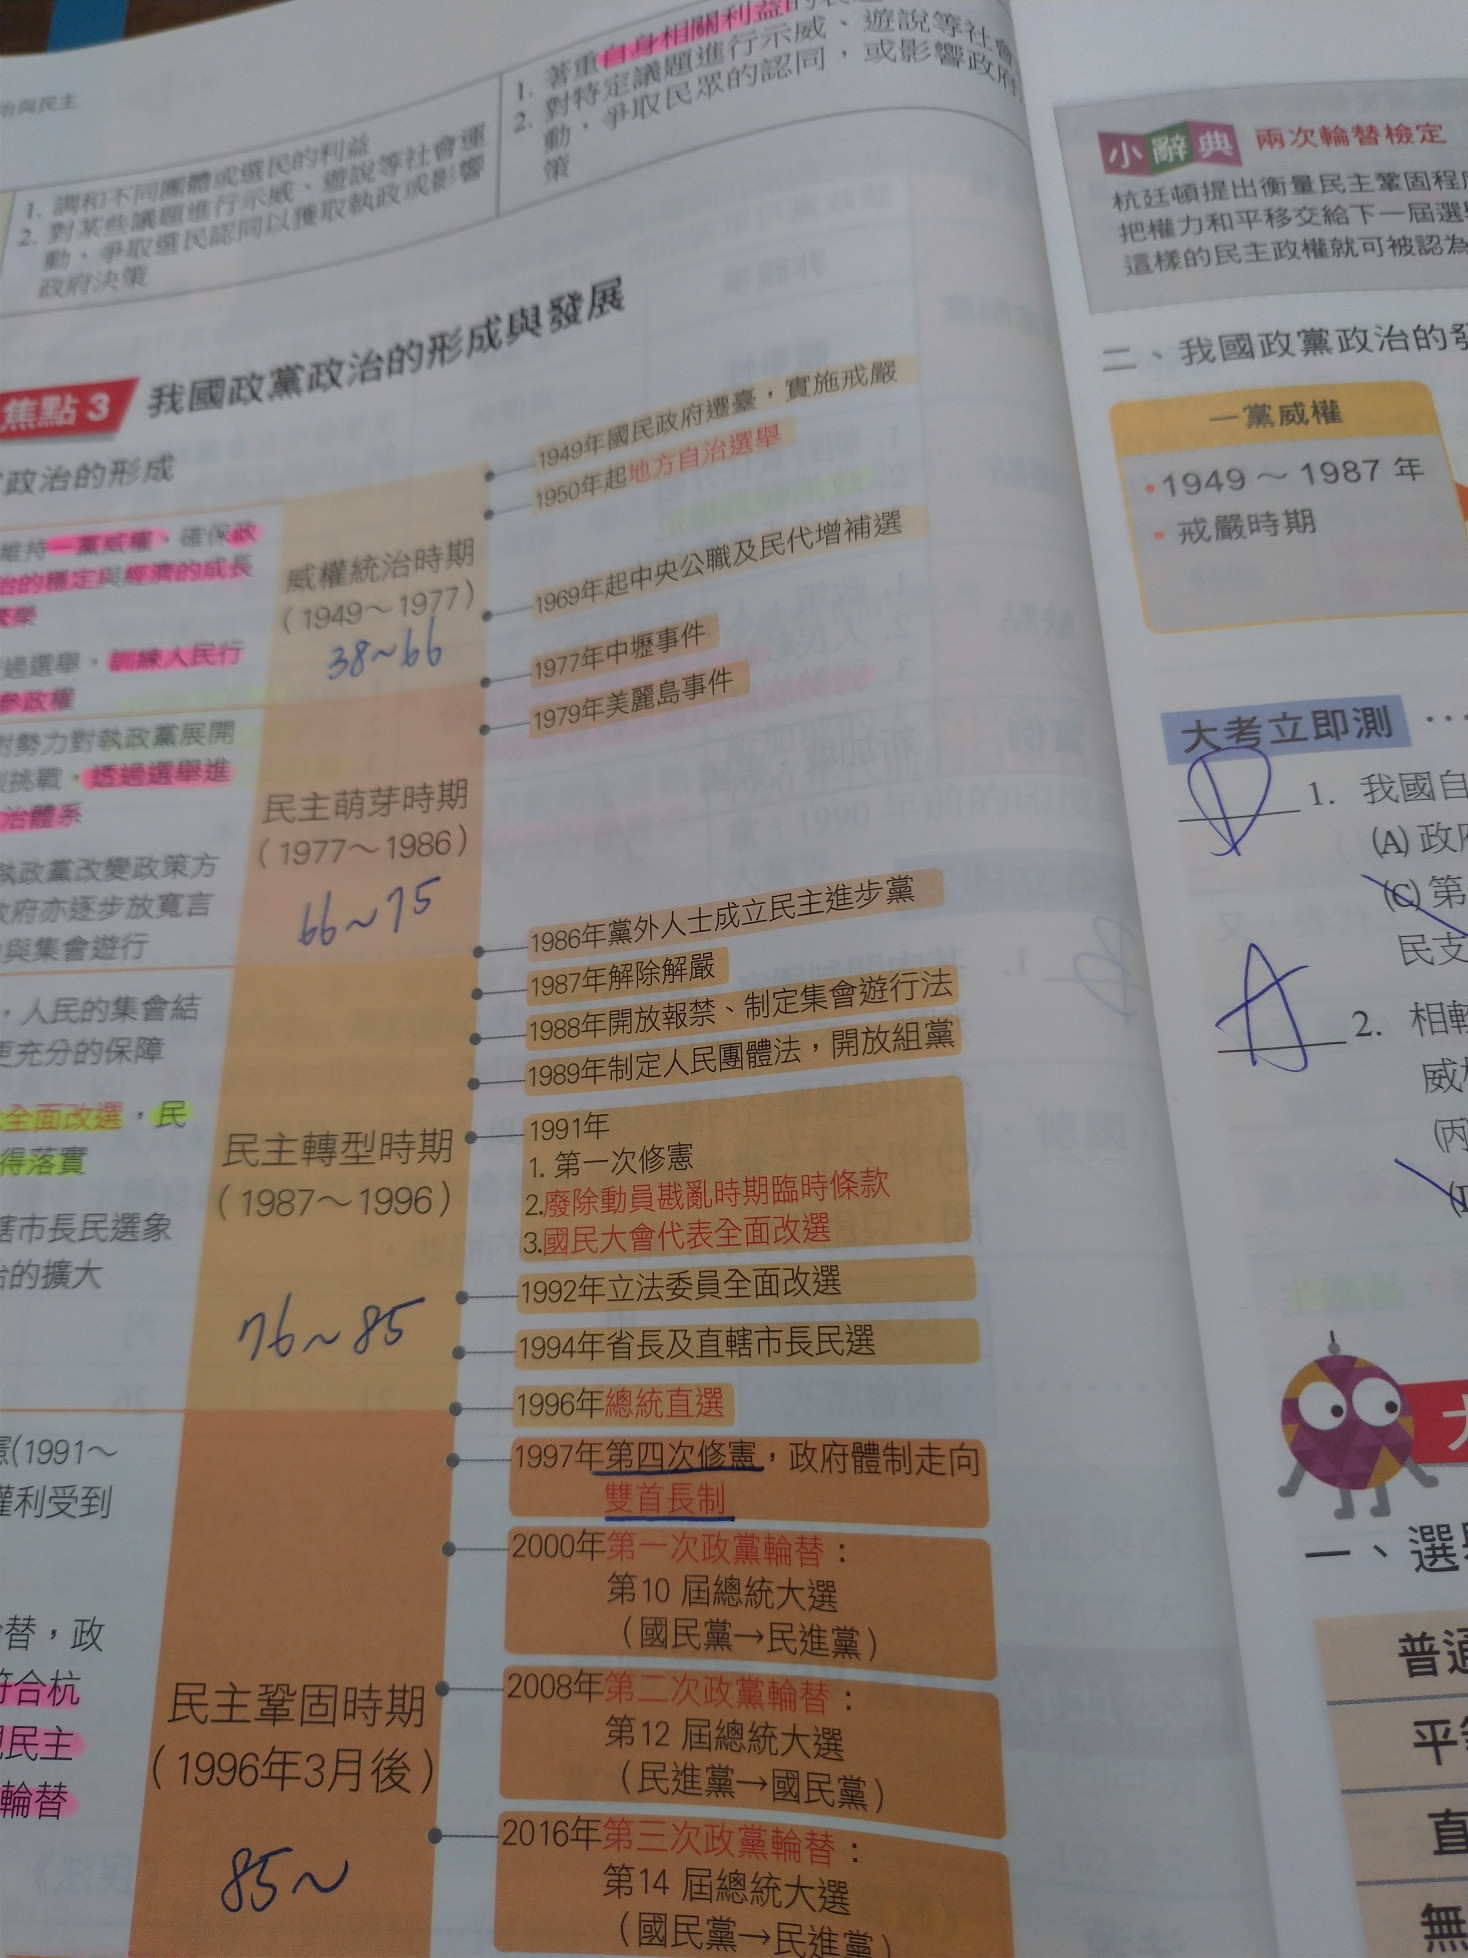 治與民主
1. 調和不同團體或選民的利益
2. 對某些議題進行示威、遊說等社會運
動，爭取選民認同以獲取執政或影響
政府決策
1. 著重自身相關利益的
2. 對特定議題進行示威、遊說等社會
動，爭取民眾的認同，或影響政府
策
焦點3 我國政黨政治的形成與發展
政治的形成
維持一黨威權、確保政
治的穩定與經濟的成長
繁榮
過選舉，訓練人民行
參政權
威權統治時期
（1949～1977）
38~66
1949年國民政府遷臺，實施戒嚴
1950年起地方自治選舉
1969年起中央公職及民代增補選
1977年中壢事件
1979年美麗島事件
對勢力對執政黨展開
挑戰，透過選舉進
治體系
執政黨改變政策方
政府亦逐步放寬言
與集會遊行
民主萌芽時期
（1977～1986）
66~75
1986年黨外人士成立民主進步黨
1987年解除解嚴
1988年開放報禁、制定集會遊行法
1989年制定人民團體法，開放組黨
，人民的集會結
更充分的保障
全面改選，民
得落實
轄市長民選象
治的擴大
民主轉型時期
（1987～1996）
76~85
1991年
1. 第一次修憲
2.廢除動員戡亂時期臨時條款
3.國民大會代表全面改選
1992年立法委員全面改選
1994年省長及直轄市長民選
1996年總統直選
憲(1991～
權利受到
替，政
符合杭
民主
輪替
民主鞏固時期
（1996年3月後）
85~
1997年第四次修憲，政府體制走向
雙首長制
2000年第一次政黨輪替：
第10 屆總統大選
（國民黨→民進黨）
2008年第二次政黨輪替：
第12 屆總統大選
（民進黨→國民黨）
2016年第三次政黨輪替：
第14 屆總統大選
（國民黨→民進黨）
小辭典 兩次輪替檢定
杭廷頓提出衡量民主鞏固程
把權力和平移交給下一屆選
這樣的民主政權就可被認為
二、我國政黨政治的發
一黨威權
•1949～1987 年
•戒嚴時期
大考立即測
D 1. 我國自
(A) 政府
(C) 第
民支
A 2. 相較
威權
(丙)
一、選
普通
平等
直
無